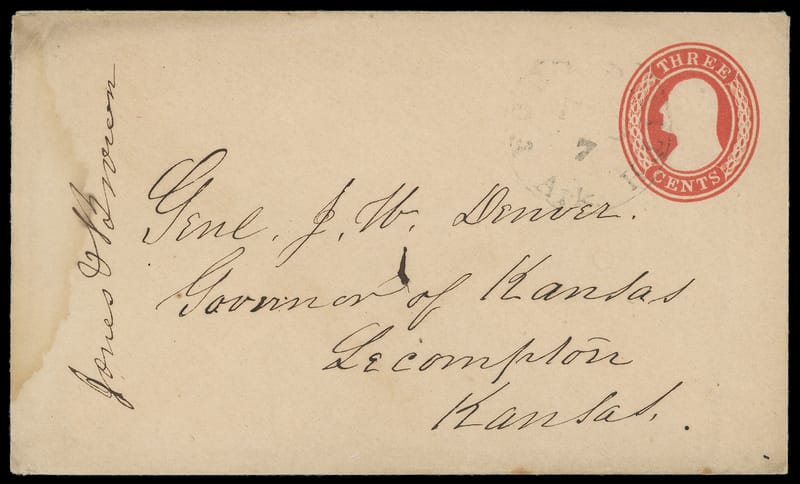 THREE
CENTS
7
ARK
Genl. J. W. Denver.
Governor of Kansas
Lecompton
Kansas.
Jones &